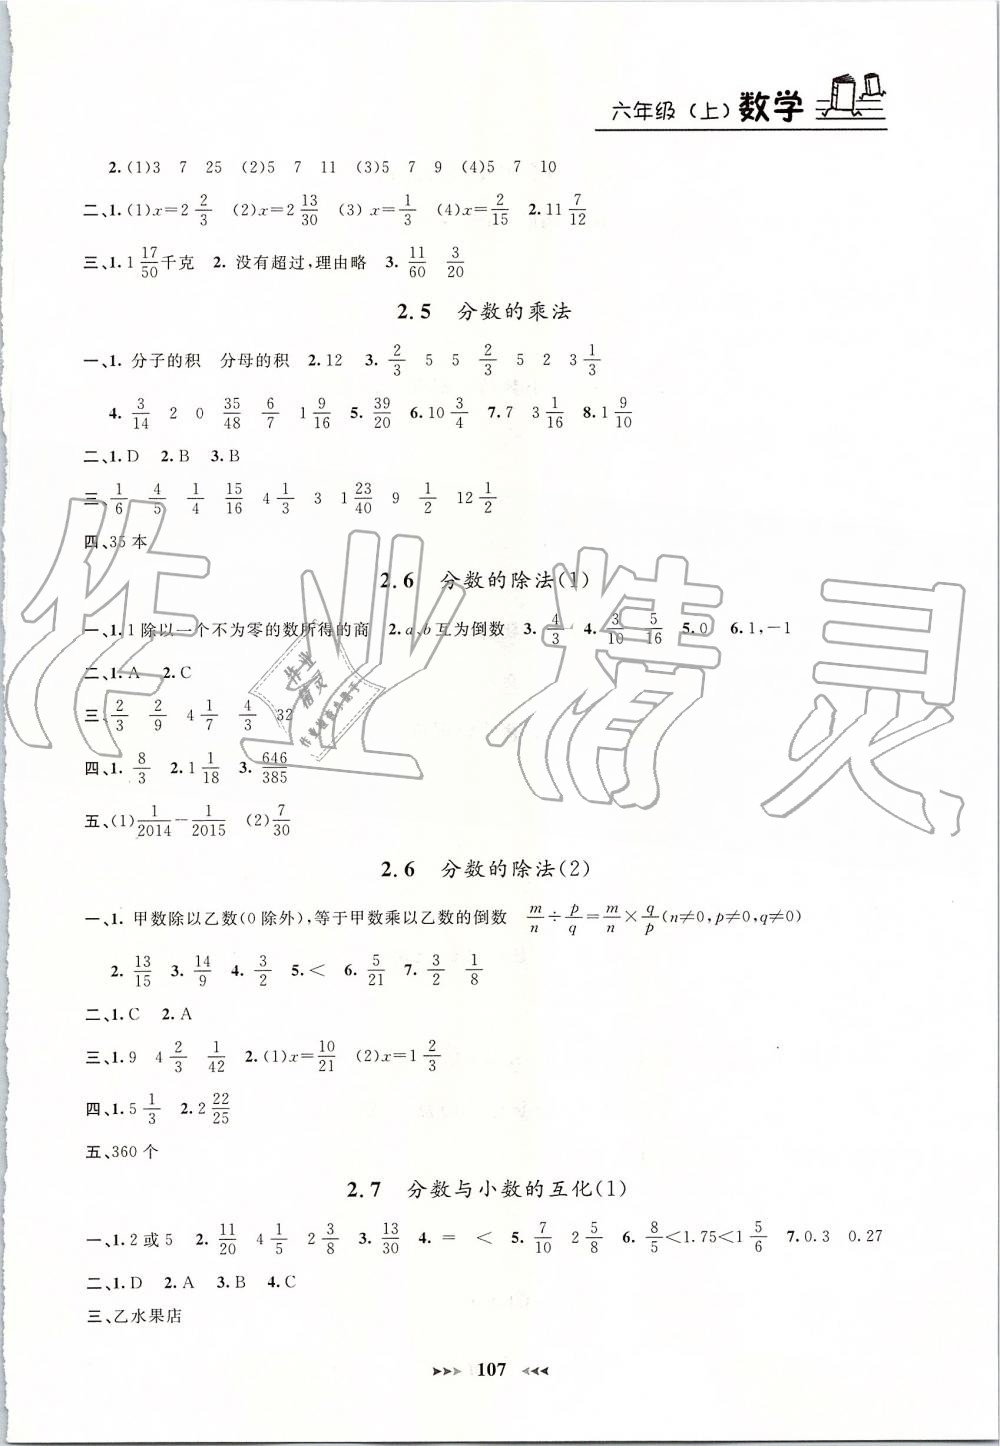 六年级（上）数学
2.(1)3 7 25 (2)5 7 11 (3)5 7 9 (4)5 7 10
二、1.(1)x=2 2/3 (2)x=2 13/30 (3) x=1/3 (4)x=2/15 2.11 7/12
三、1.1 17/50千克 2. 没有超过,理由略 3. 11/60 3/20
2.5 分数的乘法
一、1. 分子的积 分母的积 2.12 3. 2/3 5 5 2/3 5 2 3 1/3
4. 3/14 2 0 35/48 6/7 1 9/16 5. 39/20 6.10 3/4 7.7 3 1/16 8.1 9/10
二、1.D 2.B 3.B
三、1/6 4/5 1/4 15/16 4 1/3 3 1 23/40 9 1/2 12 1/2
四、35本
2.6 分数的除法(1)
一、1.1除以一个不为零的数所得的商 2.a、b互为倒数 3. 4/3 4. 3/10 5/16 5.0 6.1,-1
二、1.A 2.C
三、2/3 2/9 4 1/7 4/3 32
四、1. 8/3 2.1 1/18 3. 646/385
五、(1)1/2014-1/2015 (2)7/30
2.6 分数的除法(2)
一、1. 甲数除以乙数(0除外),等于甲数乘以乙数的倒数 m/n÷p/q=m/n×q/p(n≠0,p≠0,q≠0)
2. 13/15 3. 14/9 4. 3/2 5.< 6. 5/21 7. 3/2 1/8
二、1.C 2.A
三、1.9 4 2/3 1/42 2.(1)x=10/21 (2)x=1 2/3
四、1.5 1/3 2.2 22/25
五、360个
2.7 分数与小数的互化(1)
一、1.2或5 2. 11/20 4 1/5 2 3/8 3. 13/30 4. = < 5. 7/10 2 5/8 6. 8/5<1.75<1 5/6 7.0.3 0.27
二、1.D 2.A 3.B 4.C
三、乙水果店
107
作业精灵
作业
精灵